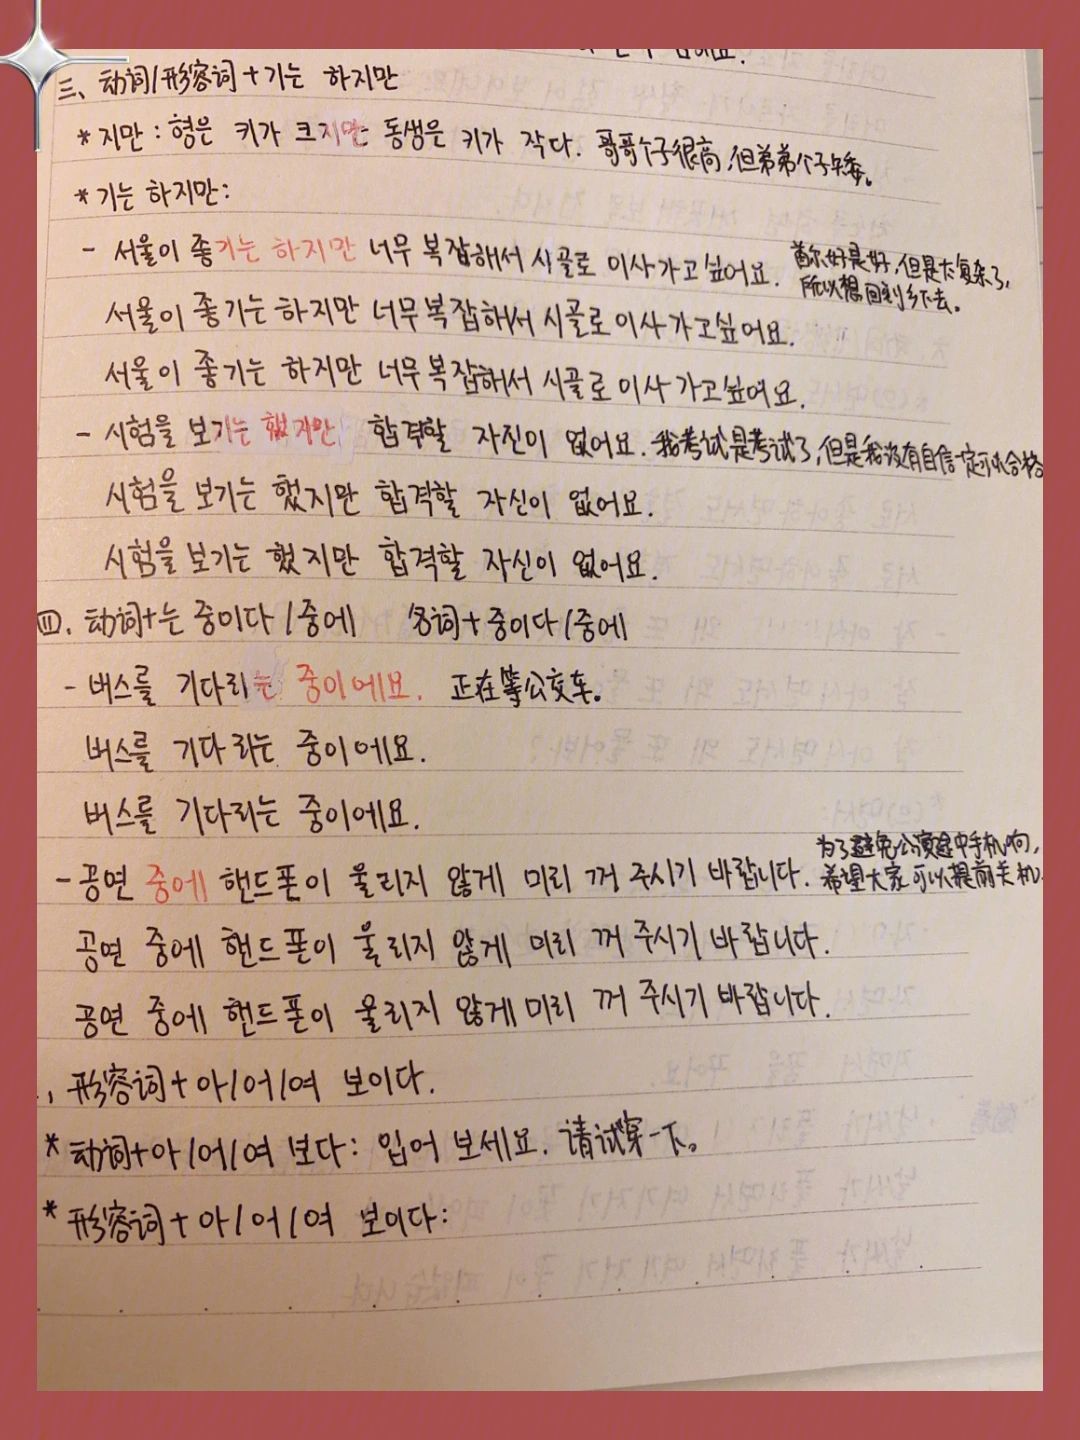 三、动词/形容词+기는 하지만
*지만: 형은 키가 크지만 동생은 키가 작다. 哥哥个子很高,但弟弟个子矮。
*기는 하지만:
- 서울이 좋기는 하지만 너무 복잡해서 시골로 이사 가고 싶어요. 首尔好是好,但是太复杂了,
所以想回到乡下去。
서울이 좋기는 하지만 너무 복잡해서 시골로 이사 가고 싶어요.
서울이 좋기는 하지만 너무 복잡해서 시골로 이사 가고 싶어요.
- 시험을 보기는 했지만 합격할 자진이 없어요. 我考试是考试了,但是我没有自信一定可以合格
시험을 보기는 했지만 합격할 자신이 없어요.
시험을 보기는 했지만 합격할 자신이 없어요.
四. 动词+는 중이다/중에 名词+중이다/중에
- 버스를 기다리는 중이에요. 正在等公交车。
버스를 기다리는 중이에요.
버스를 기다리는 중이에요.
- 공연 중에 핸드폰이 울리지 않게 미리 꺼 주시기 바랍니다. 为了避免公演途中手机响,
希望大家可以提前关机.
공연 중에 핸드폰이 울리지 않게 미리 꺼 주시기 바랍니다.
공연 중에 핸드폰이 울리지 않게 미리 꺼 주시기 바랍니다.
, 形容词+아/어/여 보이다.
*动词+아/어/여 보다: 입어 보세요. 请试穿一下。
*形容词+아/어/여 보이다: